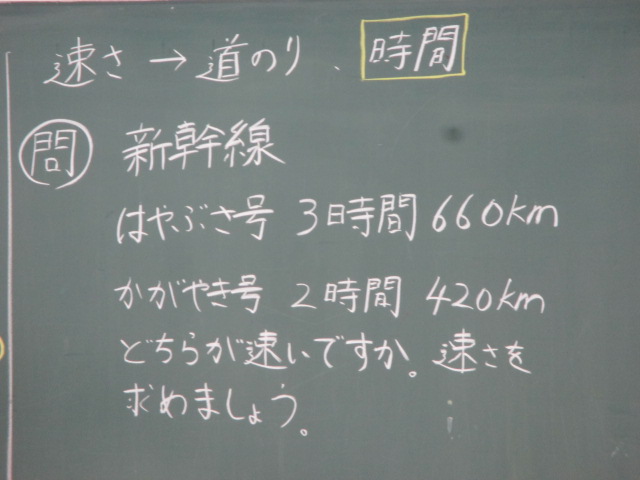 速さ → 道のり、時間
問 新幹線
はやぶさ号 3時間 660km
かがやき号 2時間 420km
どちらが速いですか。速さを
求めましょう。